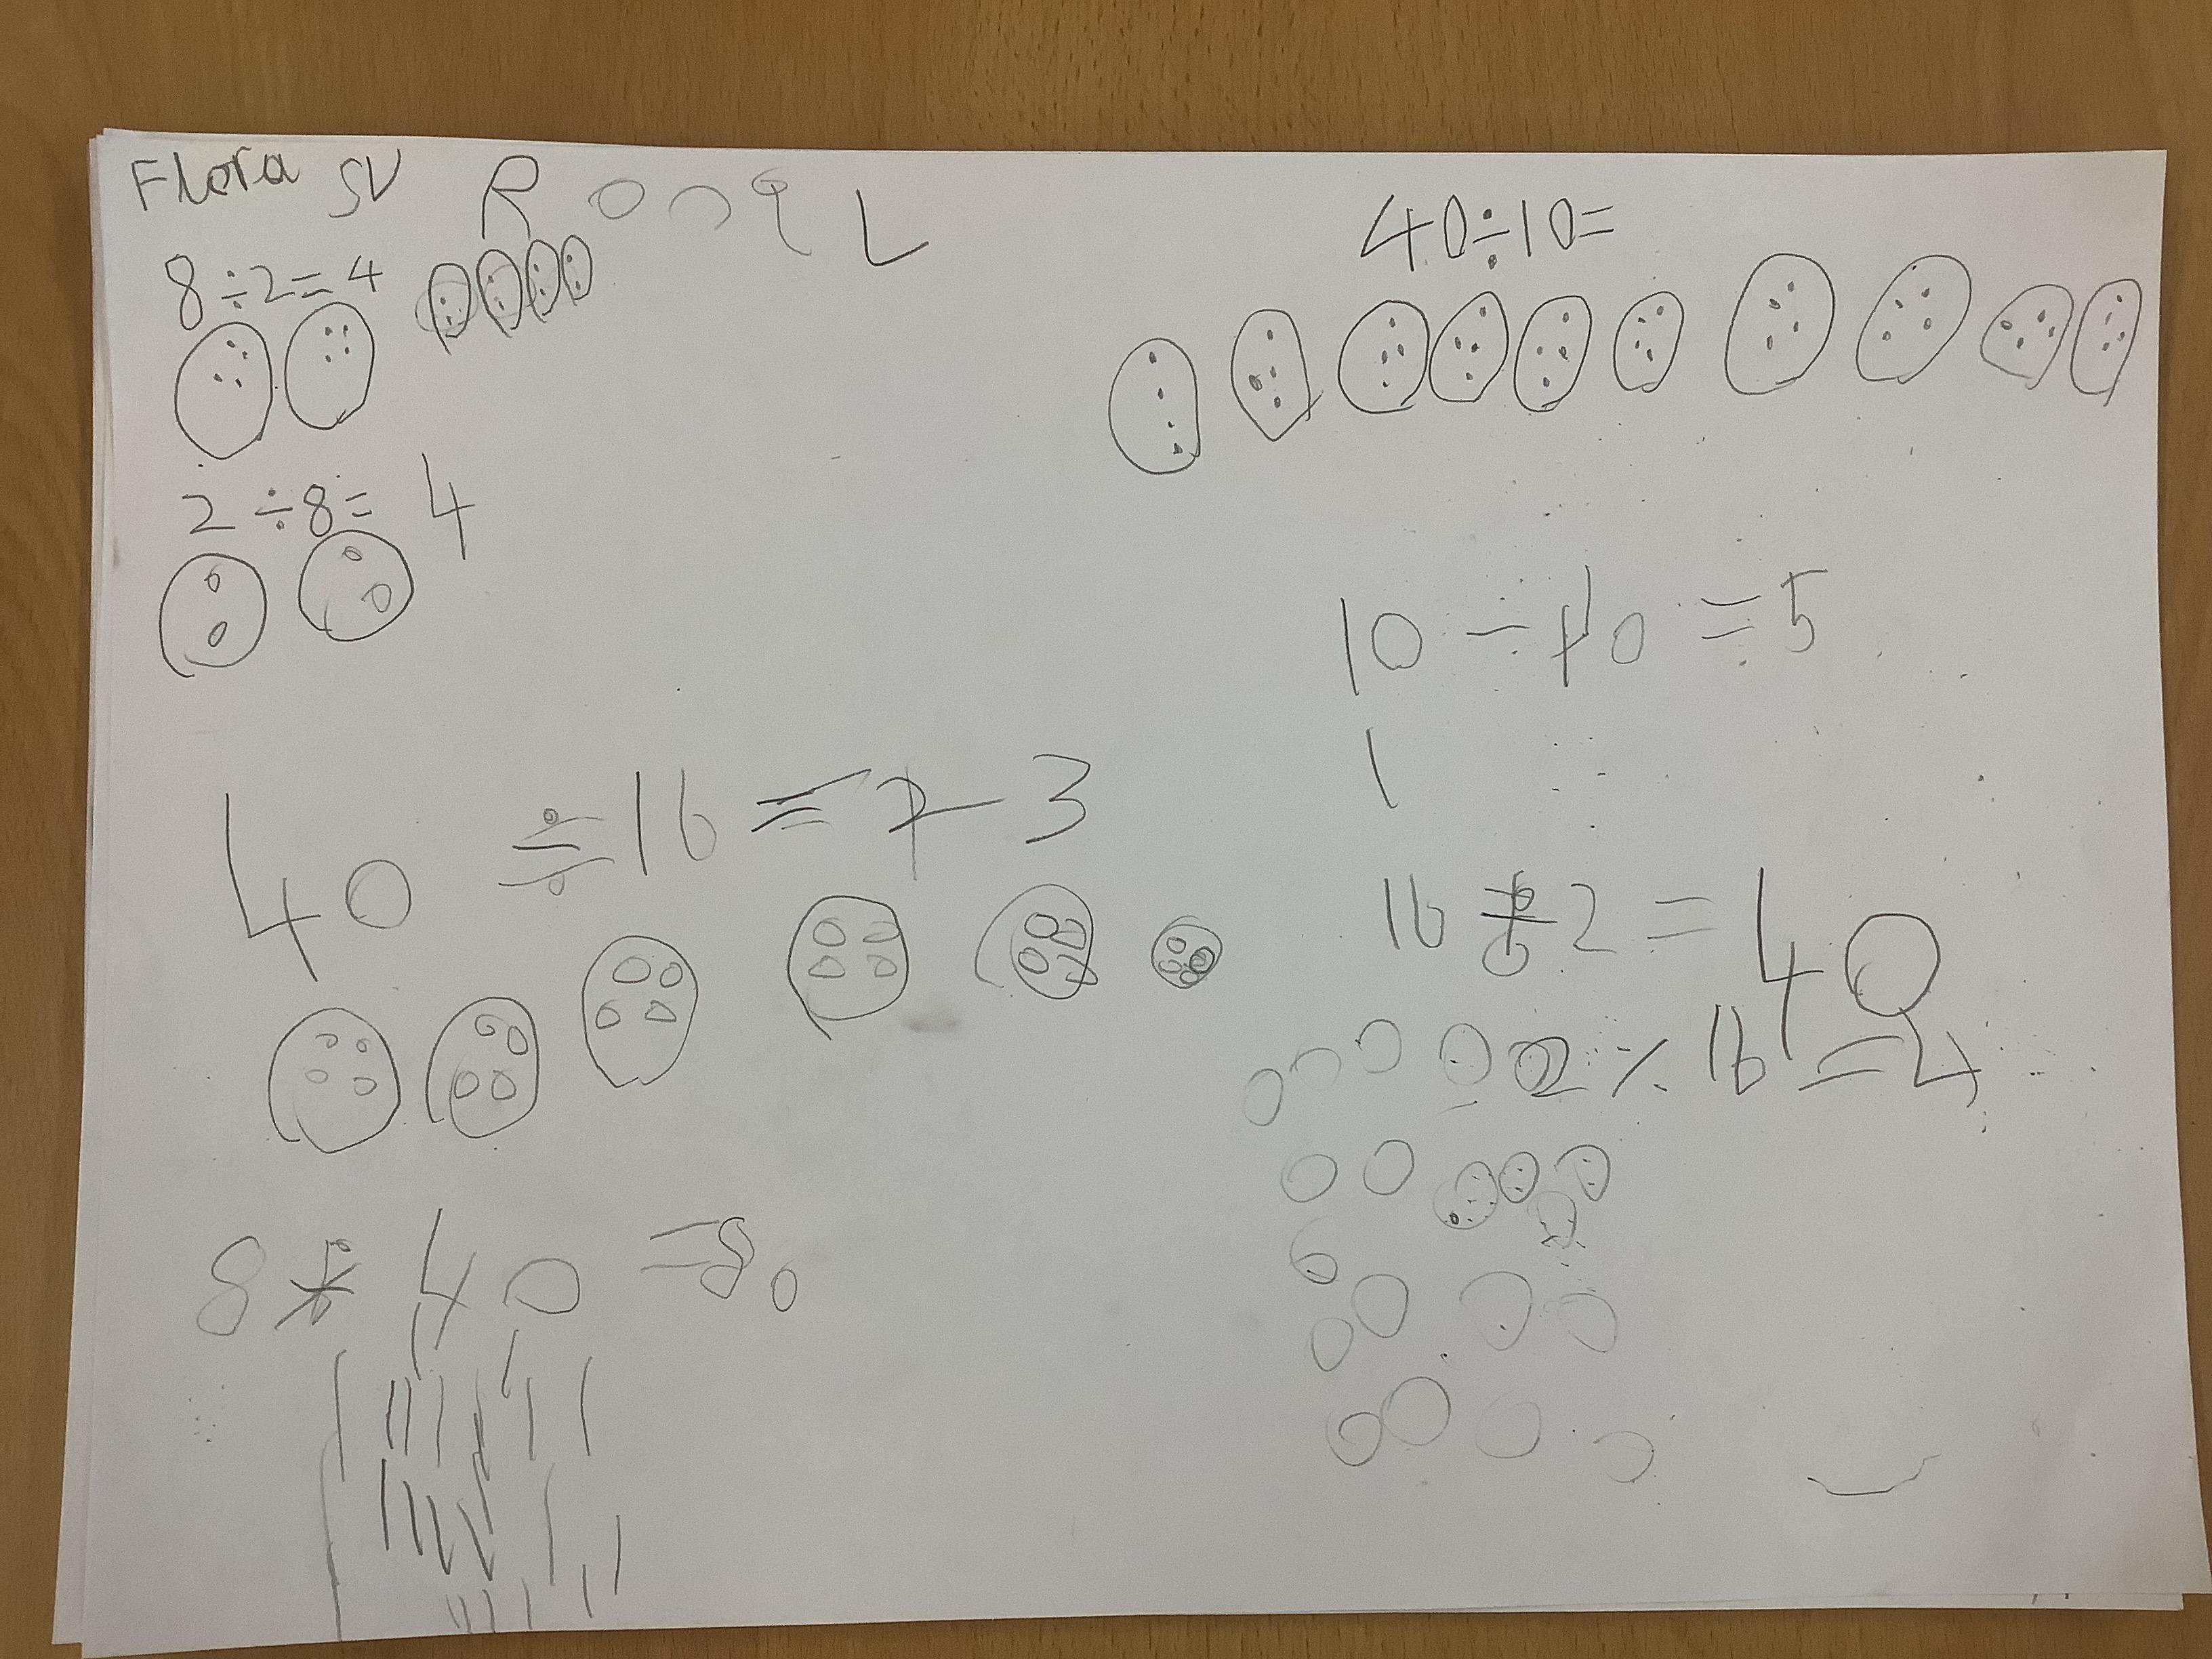 Flora SV R
8÷2=4
2÷8=4
40÷16= 3
8 40 =80
40÷10=
10÷10=5
1
16÷2=40
2÷16=4